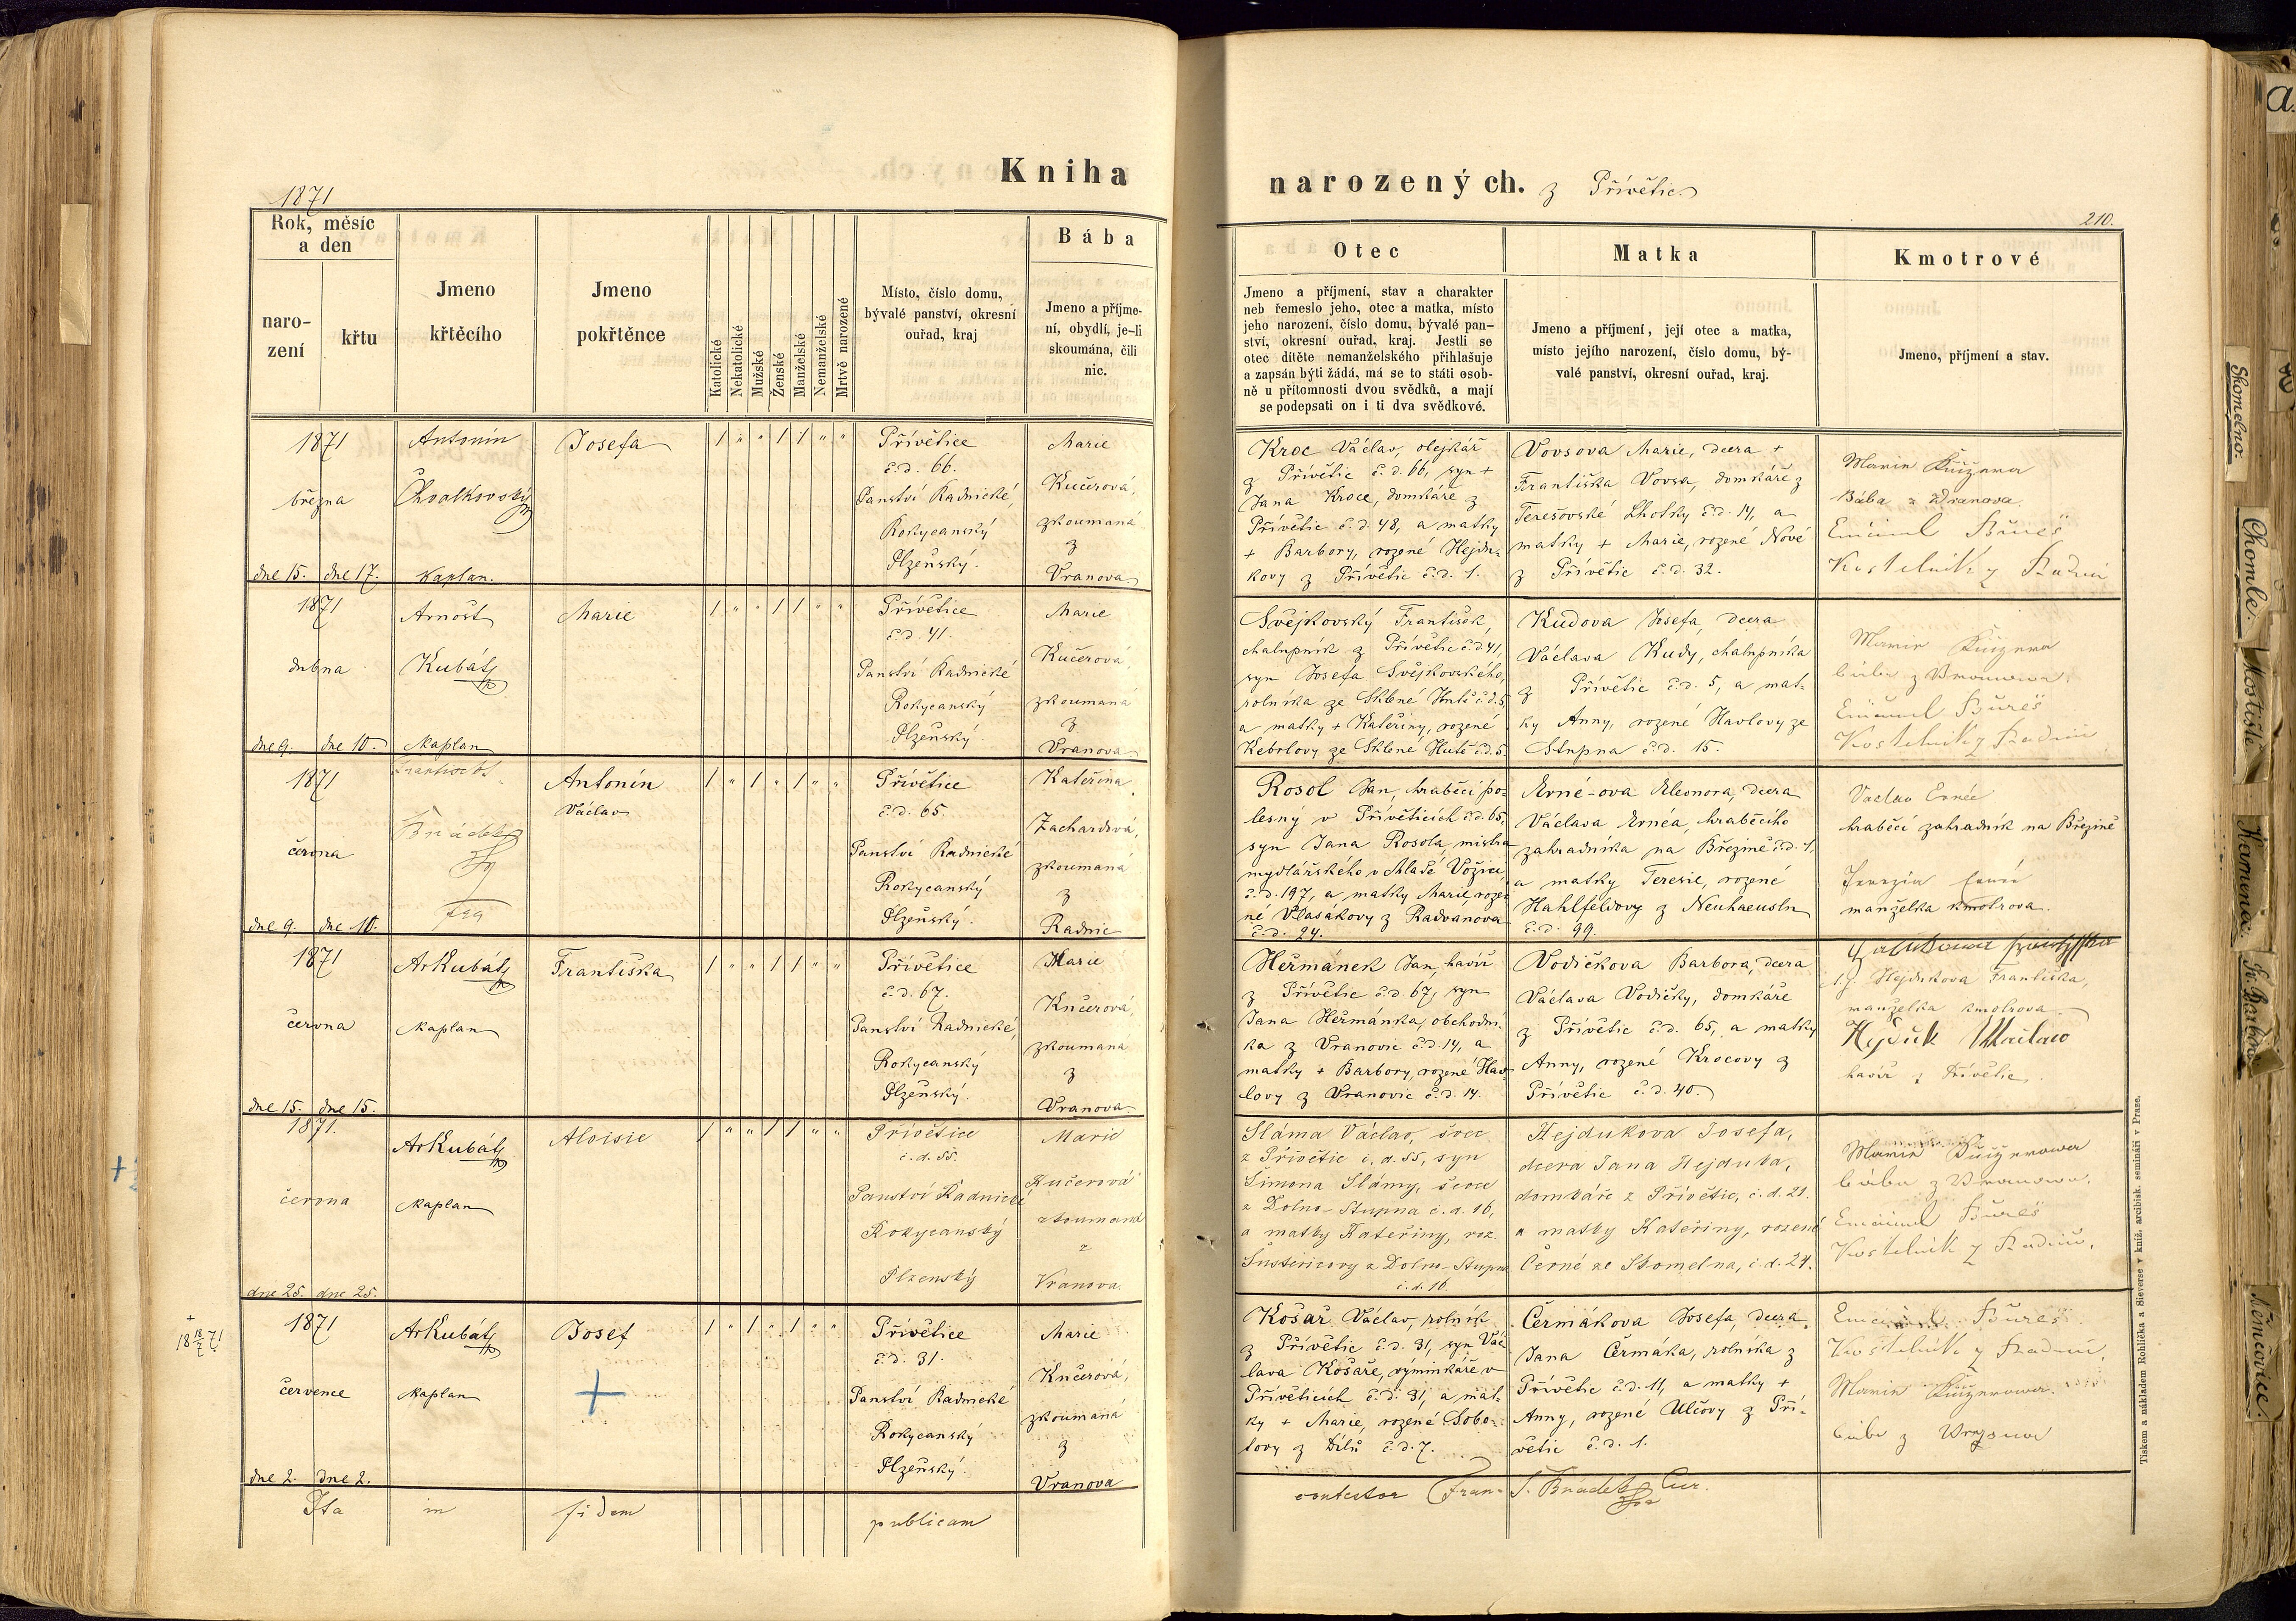 1871
Kniha
narozených. z Přívětic
210.
Rok, měsíc
a den
naro-
zení
křtu
Jmeno
křtěcího
Jmeno
pokřtěnce
Katolické
Nekatolické
Mužské
Ženské
Manželské
Nemanželské
Mrtvě narozené
Místo, číslo domu,
bývalé panství, okresní
ouřad, kraj
Bába
Jmeno a příjme-
ní, obydlí, je-li
skoumána, čili
nic.
Otec
Jmeno a příjmení, stav a charakter
neb řemeslo jeho, otec a matka, místo
jeho narození, číslo domu, bývalé pan-
ství, okresní ouřad, kraj. Jestli se
otec dítěte nemanželského přihlašuje
a zapsán býti žádá, má se to státi osob-
ně u přítomnosti dvou svědků, a mají
se podepsati on i ti dva svědkové.
Matka
Jmeno a příjmení, její otec a matka,
místo jejího narození, číslo domu, bý-
valé panství, okresní ouřad, kraj.
Kmotrové
Jmeno, příjmení a stav.
1871
března
dne 15. dne 17.
Antonín
Chvalkovský
Kaplan.
Josefa
1 " " 1 1 " "
Přívětice
č.d. 66.
Panství Radnické,
Rokycanský
Plzeňský.
Marie
Kučerová,
zkoumaná
z
Vranova
Kroc Václav, olejkář
z Přívětic č.d. 66, syn +
Jana Kroce, domkáře z
Přívětic č.d. 48, a matky
+ Barbory, rozené Hejdu-
kovy z Přívětic č.d. 1.
Vovsova Marie, dcera +
Františka Vovsa, domkáře z
Terešovské Lhotky č.d. 14, a
matky + Marie, rozené Nové
z Přívětic č.d. 32.
Bába z Vranova.
Kostelník z Radnic
1871
dubna
dne 9. dne 10.
Arnošt
Kubát
Kaplan
Marie
1 " " 1 1 " "
Přívětice
č.d. 41.
Panství Radnické
Rokycanský
Plzeňský.
Marie
Kučerová,
zkoumaná
z
Vranova
Švejkovský František,
chalupník z Přívětic č.d. 41,
syn Josefa Švejkovského,
rolníka ze Sklené Hutě č.d. 5,
a matky + Kateřiny, rozené
Kebrlovy ze Sklené Hutě č.d. 5.
Kudova Josefa, dcera
Václava Kudy, chalupníka
z Přívětic č.d. 5, a mat-
ky Anny, rozené Havlovy ze
Stupna č.d. 15.
bába z Vranova.
Kostelník z Radnic
1871
června
dne 9. dne 10.
František
Antonín
Václav
1 " 1 " 1 " "
Přívětice
č.d. 65.
Panství Radnické
Rokycanský
Plzeňský.
Kateřina
zkoumaná
z
Radnic
Rosol Jan, hraběcí po-
lesný v Příveticích č.d. 65,
syn Jana Rosola, mistra
mydlářského v Mladé Vožici,
č.d. 197, a matky Marie, roze-
né Vlasákovy z Radvánova
č.d. 24.
Erné-ova Eleonora, dcera
Václava Ernéa, hraběcího
zahradníka na Březině č.d. 1,
a matky Teresie, rozené
Hahlfeldovy z Neuhaeusln
č.d. 99.
Vaclav Ernée
hraběcí zahradník na Březině
manželka kmotrova.
1871
června
dne 15. dne 15.
ArKubát
Kaplan
Františka
1 " " 1 1 " "
Přívětice
č.d. 67.
Panství Radnické,
Rokycanský
Plzeňský.
Marie
Kučerová,
zkoumaná
z
Vranova
Heřmánek Jan, havíř
z Přívětic č.d. 67, syn
Jana Heřmánka, obchodní-
ka z Vranovic č.d. 14, a
matky + Barbory, rozené Hav-
lovy z Vranovic č.d. 14.
Vodičkova Barbora, dcera
Václava Vodičky, domkáře
z Přívětic č.d. 65, a matky
Anny, rozené Krocovy z
Přívětic č.d. 40.
Hejdukova Františka,
manželka kmotrova.
Hejduk
havíř z Přívětic.
1871.
června
dne 25. dne 25.
ArKubát
Kaplan
Aloisie
1 " " 1 1 " "
Přívětice
č.d. 55.
Panství Radnické
Rokycanský
Plzenský
Marie
Kučerová
zkoumaná
z
Vranova.
Sláma Václav, švec
z Přívětic č.d. 55, syn
Šimona Slámy, ševce
z Dolno-Stupna č.d. 16,
a matky Kateřiny, roz.
č.d. 16.
Hejdukova Josefa,
dcera Jana Hejduka,
domkáře z Přívětic, č.d. 21.
a matky Kateřiny, rozené
Černé ze Skomelna, č.d. 24.
bába z Vranova.
Kostelník z Radnic.
1871
července
dne 2. dne 2.
ArKubát
Kaplan
Josef
1 " 1 " 1 " "
Přívětice
č.d. 31.
Panství Radnické
Rokycanský
Plzeňský.
Marie
Kučerová,
zkoumaná
z
Vranova
Košař Václav, rolník
z Přívětic č.d. 31, syn Vác-
lava Košaře, výminkáře v
Příveticích č.d. 31, a mat-
ky + Marie, rozené Sobo-
tovy z Dílů č.d. 7.
Čermákova Josefa, dcera
Jana Čermáka, rolníka z
Přívětic č.d. 11, a matky +
Anny, rozené Ulčovy z Pří-
větic č.d. 1.
Kostelník z Radnic.
bába z Vranova
Ita in fidem publicam
contestor Fran.
Tiskem a nákladem Rohlíčka a Sieverse v kníž. arcibisk. semináři v Praze.
Skomelno.
Chomle.
Mostiště
Kamenec.
Sv. Barbora
Němčovice.